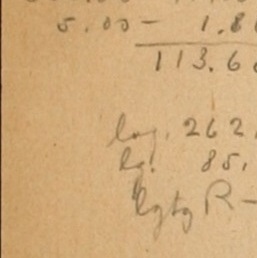 5.00 - 1.8
113.6
log. 262
lg. 85.
lgtg R -